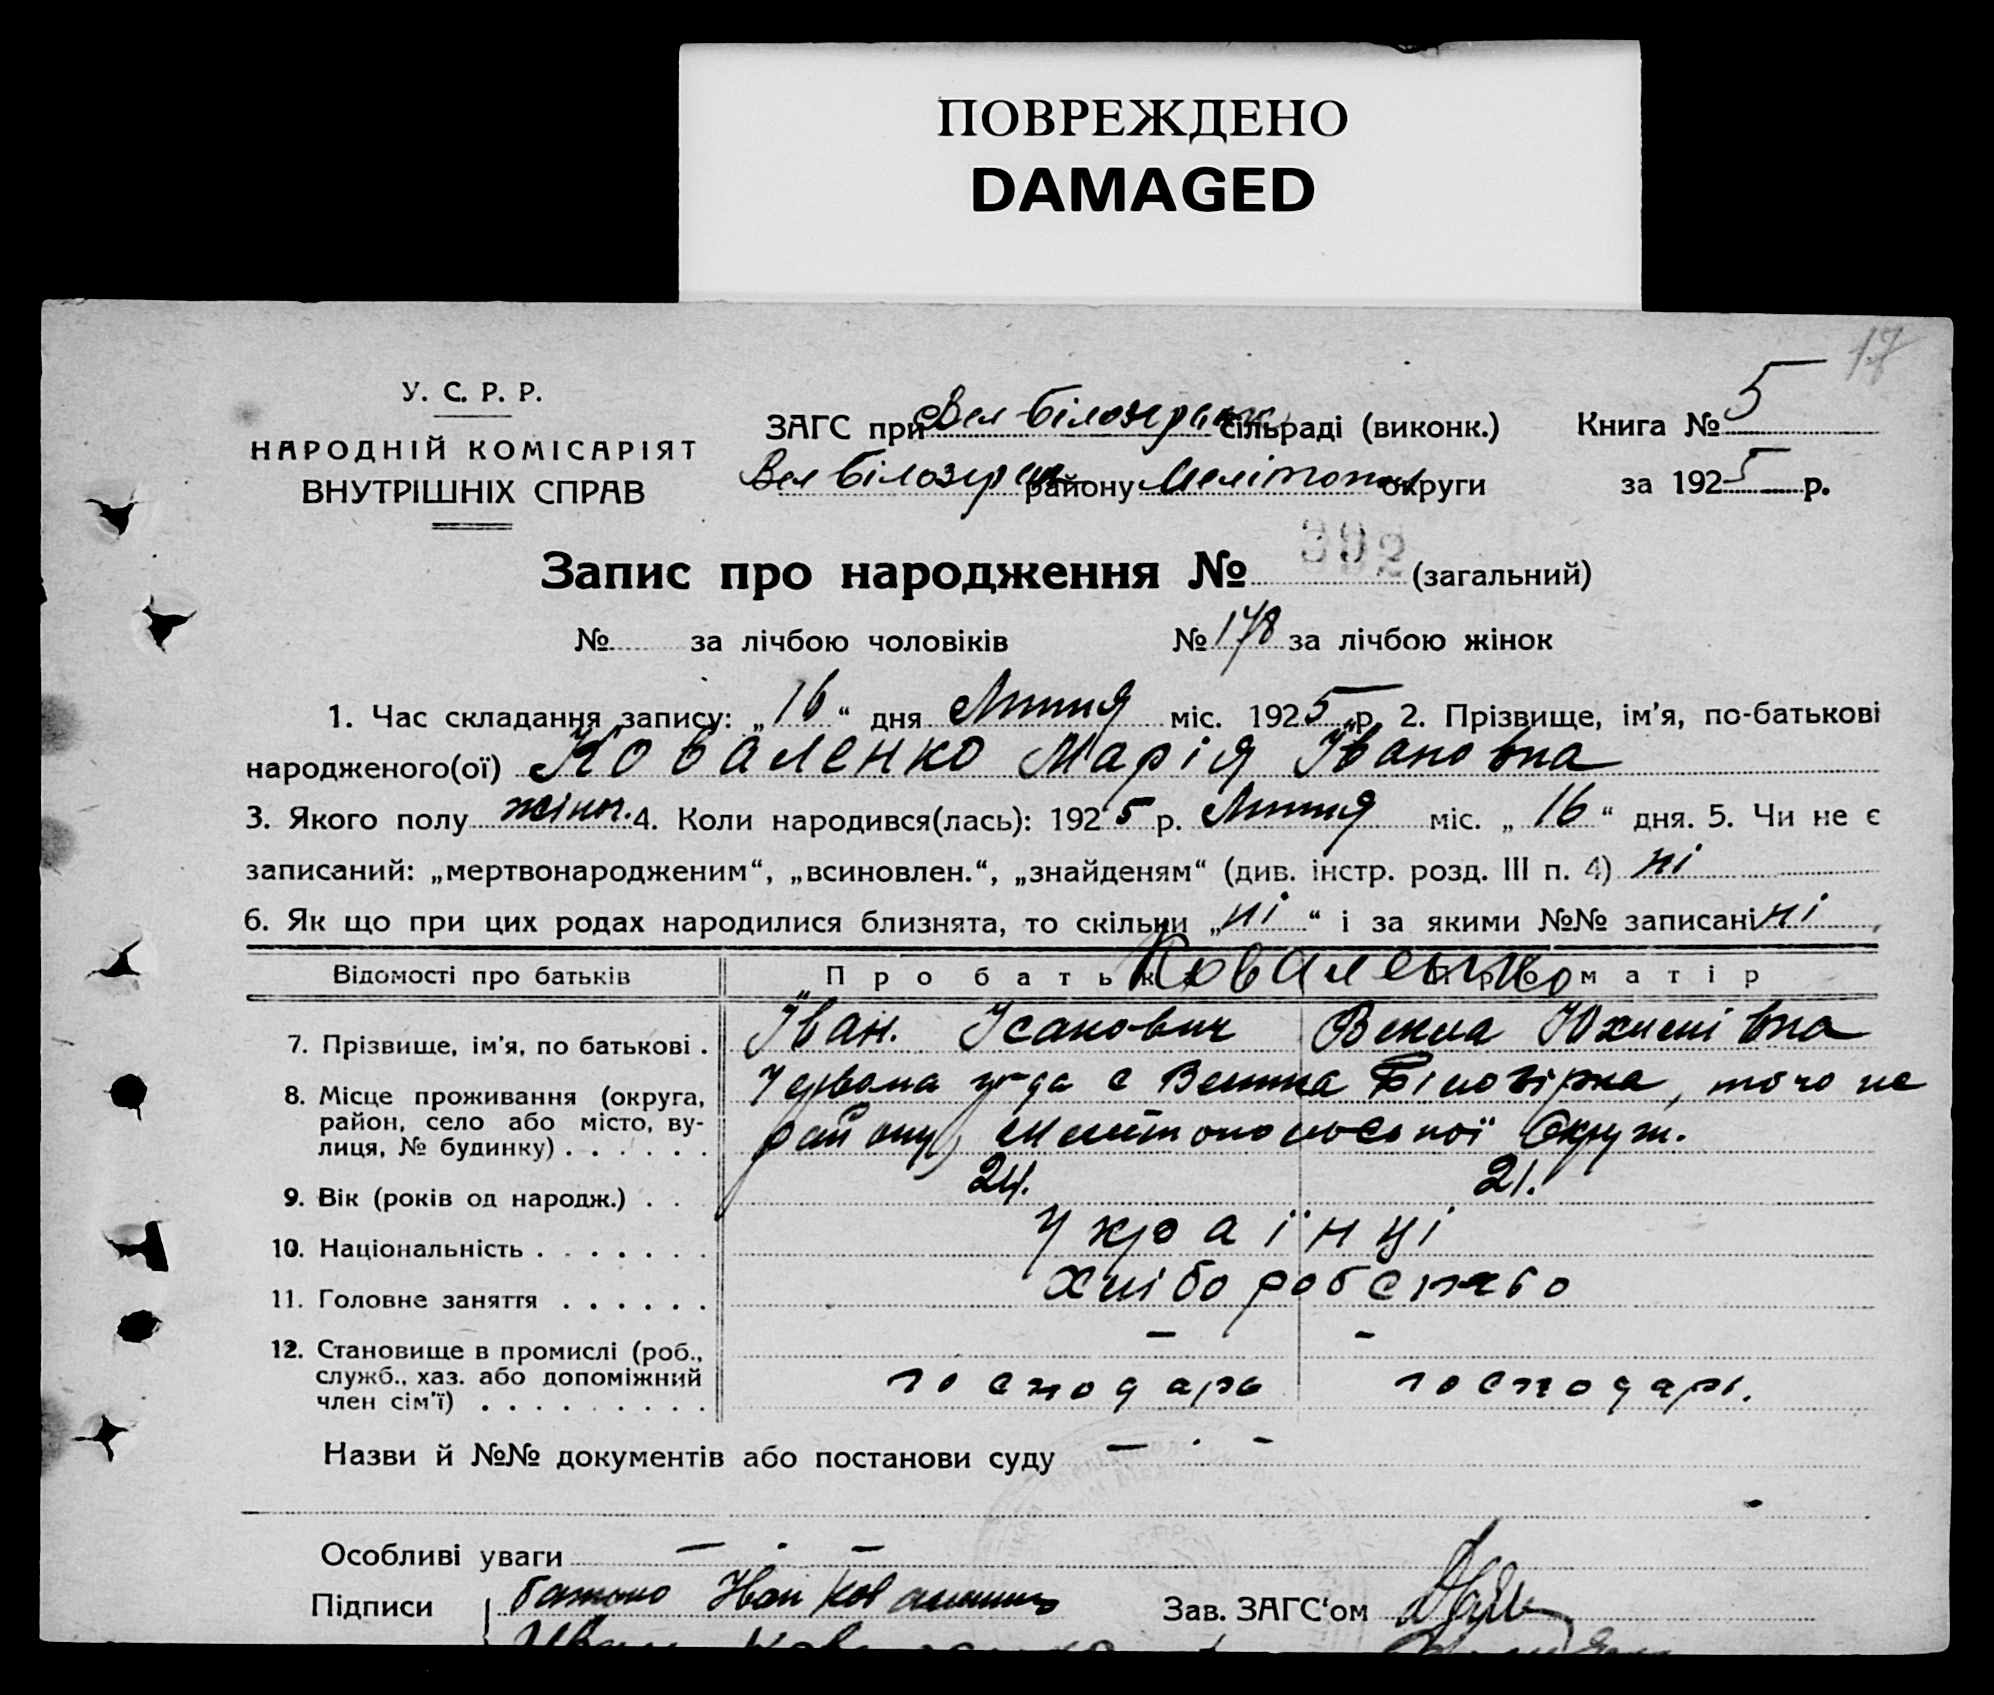 ПОВРЕЖДЕНО
DAMAGED
17
У. С. Р. Р.
НАРОДНІЙ КОМІСАРІЯТ
ВНУТРІШНІХ СПРАВ
ЗАГС при Вел Білозерськ сільраді (виконк.) Книга № 5
Вел Білозерськ району Мелітоп округи за 1925 р.
Запис про народження № 392 (загальний)
№ за лічбою чоловіків № 178 за лічбою жінок
1. Час складання запису: „16“ дня Липня міс. 1925 р. 2. Прізвище, ім'я, по-батькові
народженого(ої) Коваленко Марія Івановна
3. Якого полу жіноч. 4. Коли народився(лась): 1925 р. Липня міс. „16“ дня. 5. Чи не є
записаний: „мертвонародженим“, „всиновлен.“, „знайденям“ (див. інстр. розд. III п. 4) ні
6. Як що при цих родах народилися близнята, то скільки „ні“ і за якими №№ записані ні
Відомості про батьків Про батька Про матір
Коваленко
7. Прізвище, ім'я, по батькові . Іван. Ісакович Векла Юхимівна
8. Місце проживання (округа, район, село або місто, вулиця, № будинку) . . . . . . Червона с Велика Білозірка, того не
району, Мелітопольської Округ.
9. Вік (років од народж.) . . 24. 21.
10. Національність . . . . . . . Українці
11. Головне заняття . . . . . . Хліборобство
12. Становище в промислі (роб., служб., хаз. або допоміжний член сім'ї) . . . . . . . . . — —
господарь господарь.
Назви й №№ документів або постанови суду — · —
Особливі уваги — · —
Підписи батько Іван Коваленко Зав. ЗАГС'ом